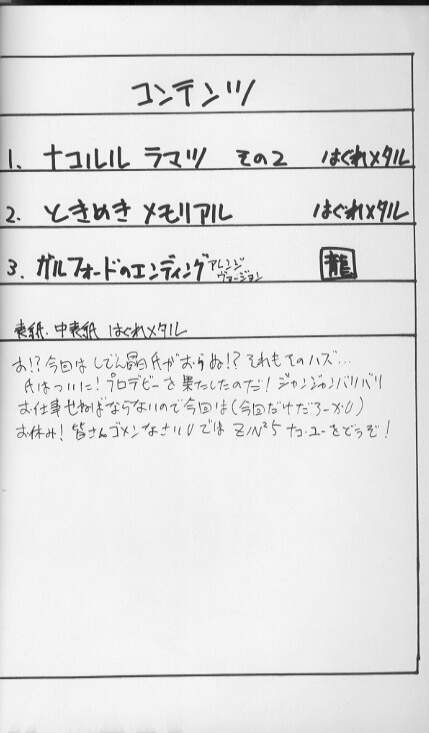 コンテンツ
1. ナコルル ラマツ その2 はぐれメタル
2. ときめきメモリアル はぐれメタル
3. ガルフォードのエンディング アレンジヴァージョン 龍
表紙・中表紙 はぐれメタル
お!?今回はしでん晶氏がおらぬ!?それもそのハズ…
氏はついに!プロデビューを果たしたのだ!ジャンジャンバリバリ
お仕事せねばならないので今回は(今回だけだろーが)
お休み!皆さんゴメンなさい では ZIN²5 ナコ・ユーをどうぞ!